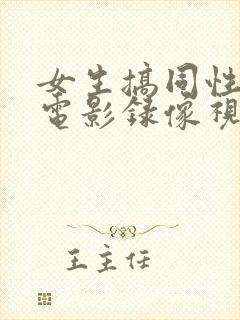 女生搞同性
電影錄像視
王主任